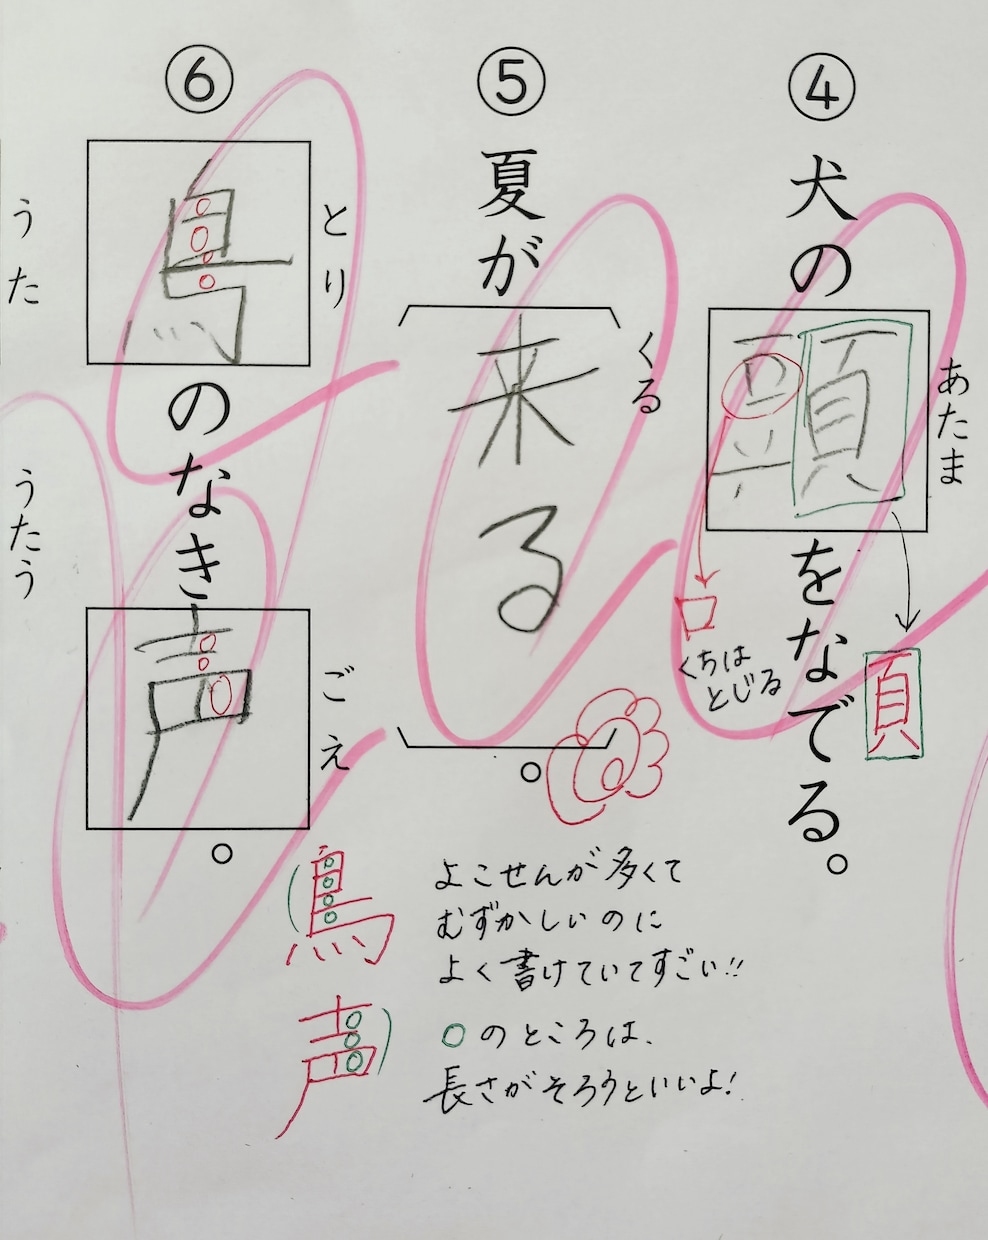 ④
犬の頭をなでる。
あたま
頁
口
くちは
とじる
⑤
夏が来る。
くる
⑥
鳥のなき声。
とり
ごえ
うた
うたう
鳥
声
よこせんが多くて
むずかしいのに
よく書けていてすごい!!
○のところは、
長さがそろうといいよ!